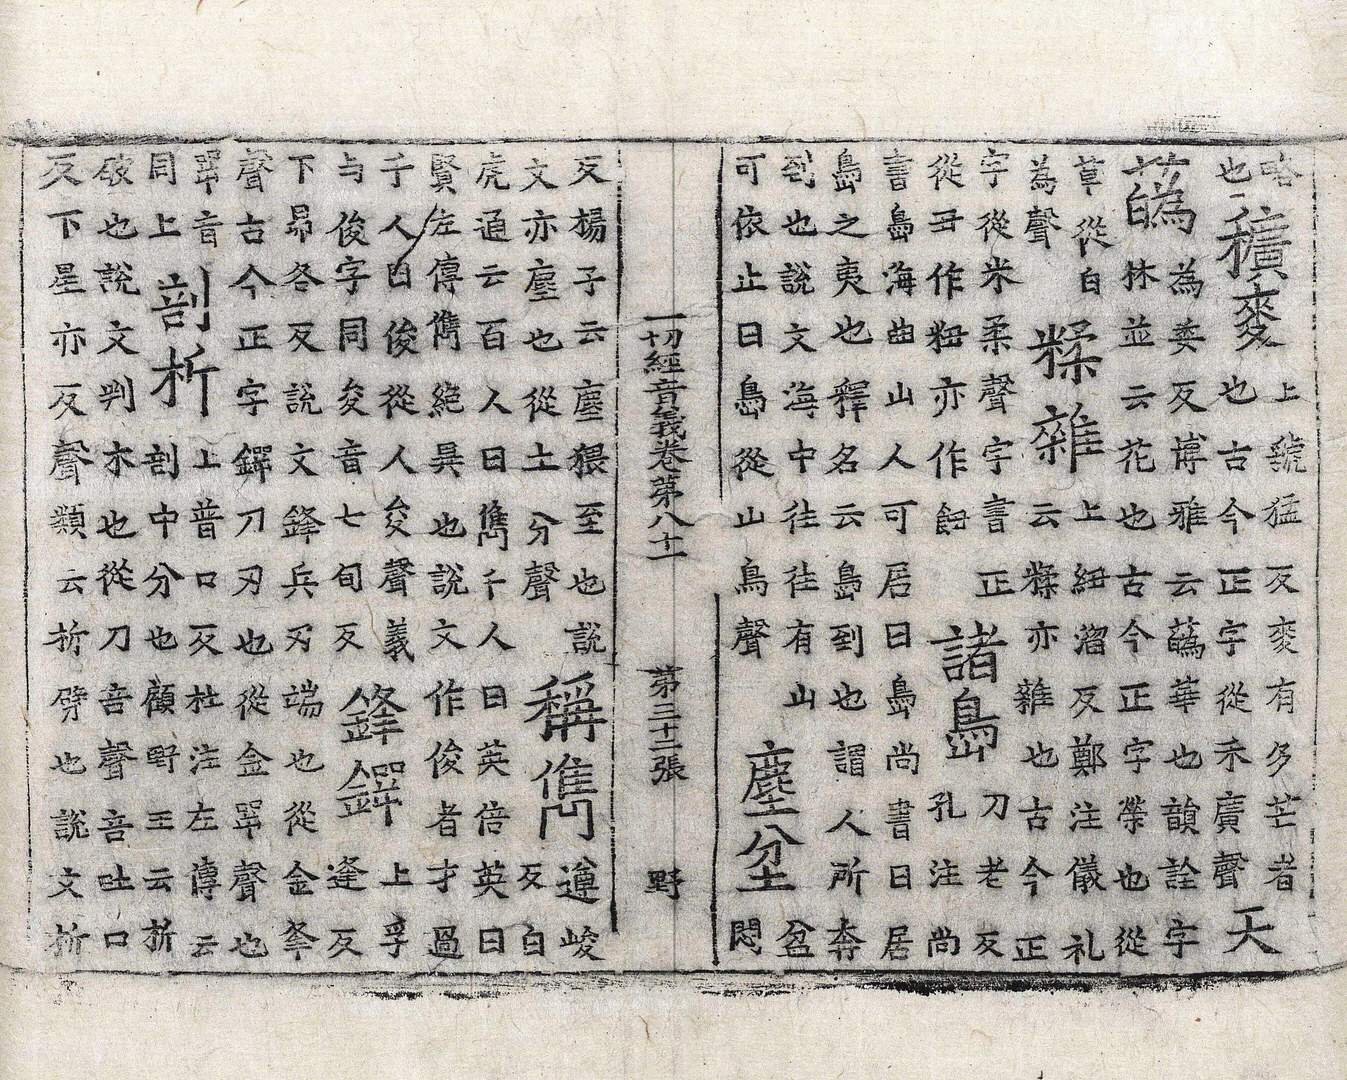 咯也穬麥上虢猛反麥有多芒者也古今正字從禾廣聲天
蘤為委反博雅云蘤華也韻詮字林並云花也古今正字榮也從
草從白為聲糅雜上紐溜反鄭注儀礼云糅亦雜也古今正
字從米柔聲字書正從丑作粈亦作諸島刀老反孔注尚
書島海曲山人可居曰島尚書曰居島之夷也釋名云島到也謂人所奔
到也說文海中往往有山可依止曰島從山鳥聲塵坌盆悶
一切經音義卷第八十一 第三十二張 野
反楊子云塵猥至也說文亦塵也從土分聲稱儁遵峻反白
虎通云百人曰儁千人曰英倍英曰賢左傳儁絕異也說文作俊者才過
千人曰俊從人夋聲義与俊字同夋音七旬反鋒鍔上孚逢反
下昂各反說文鋒兵刃端也從金夆聲古今正字鍔刀刃也從金咢聲也
咢音同上剖析上普口反杜注左傳云剖中分也顧野王云析
破也說文判木也從刀咅聲咅吐口反下星亦反聲類云析劈也說文析